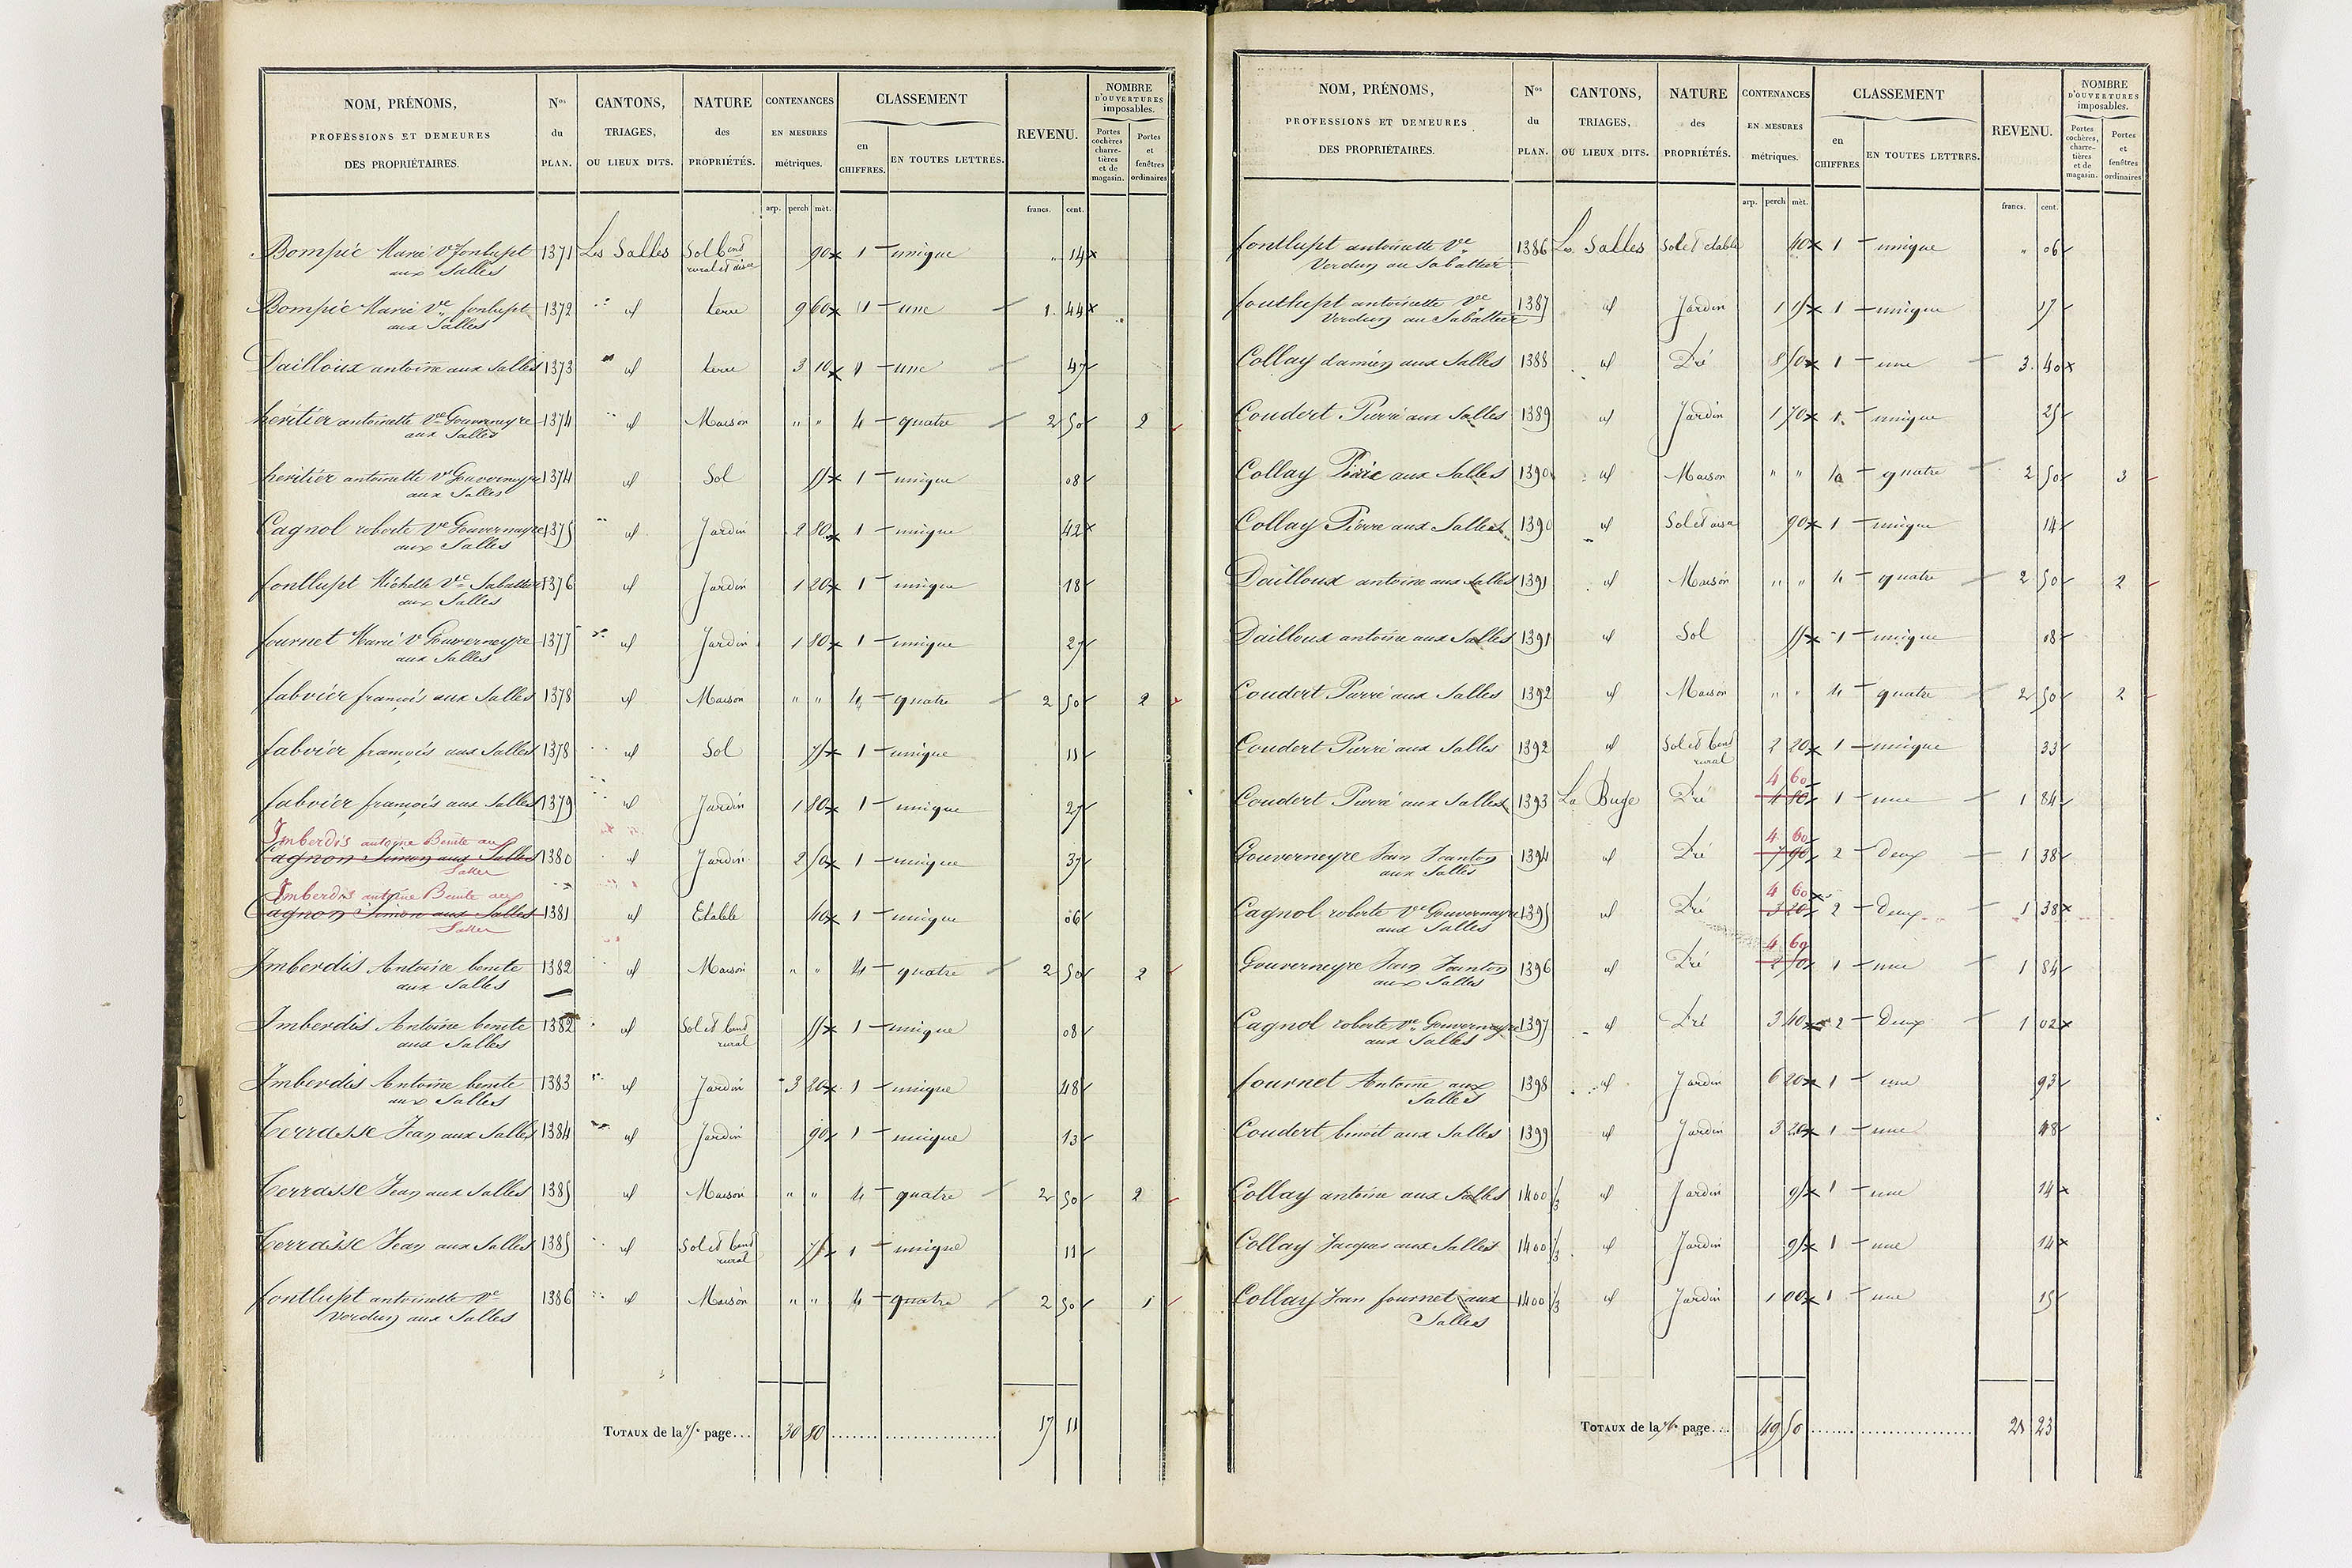 NOM, PRÉNOMS,
PROFESSIONS ET DEMEURES
DES PROPRIÉTAIRES.
Nos
du
PLAN.
CANTONS,
TRIAGES,
OU LIEUX DITS.
NATURE
des
PROPRIÉTÉS.
CONTENANCES
EN MESURES
métriques.
CLASSEMENT
en
CHIFFRES.
EN TOUTES LETTRES.
REVENU.
NOMBRE
D'OUVERTURES
imposables.
Portes
cochères
charre-
tières
et de
magasin.
Portes
et
fenêtres
ordinaires
arp. perch mèt. francs. cent.
Bompié Marie Ve fontlupt 1371 Les Salles Sol bend 90 1 unique " 14
aux Salles rural et aisce
Bompié Marie Ve fonlupt 1372 id terre 9 60 1 une 1. 44
aux Salles
Dailloux antoine aux Salles 1373 id terre 3 10 1 une 47
heritier antoinette Ve Gouverneyre 1374 id Maison " " 4 quatre 2 50 2
aux Salles
heritier antoinette Ve Gouverneyre 1374 id Sol 55 1 unique 08
aux Salles
Cagnol roberte Ve Gouverneyre 1375 id Jardin 2 80 1 unique 42
aux Salles
fontlupt Michelle Ve Sabattier 1376 id Jardin 1 20 1 unique 18
aux Salles
fournet Marie Ve Gouverneyre 1377 id Jardin 1 80 1 unique 27
aux Salles
fabvier françois aux Salles 1378 id Maison " " 4 quatre 2 50 2
fabvier françois aux Salles 1378 id Sol 75 1 unique 11
fabvier françois aux Salles 1379 id Jardin 1 80 1 unique 27
Imberdis antoine Benite aux
Cagnon Simon aux Salles 1380 id Jardin 2 50 1 unique 37
Salles
Imberdis antoine Benite aux
Cagnon Simon aux Salles 1381 id Etable 40 1 unique 06
Salles
Imberdis Antoine benite 1382 id Maison " " 4 quatre 2 50 2
aux Salles
Imberdis Antoine benite 1382 id Sol et bend 55 1 unique 08
aux Salles rural
Imberdis Antoine benite 1383 id Jardin 3 20 1 unique 48
aux Salles
Terrasse Jean aux Salles 1384 id Jardin 90 1 unique 13
Terrasse Jean aux Salles 1385 id Maison " " 4 quatre 2 50 2
Terrasse Jean aux Salles 1385 id Sol et bend 75 1 unique 11
rural
fontlupt antoinette Ve 1386 id Maison " " 4 quatre 2 50 1
Verdun aux Salles
TOTAUX de la 75e page... 30 80 17 11
NOM, PRÉNOMS,
PROFESSIONS ET DEMEURES
DES PROPRIÉTAIRES.
Nos
du
PLAN.
CANTONS,
TRIAGES,
OU LIEUX DITS.
NATURE
des
PROPRIÉTÉS.
CONTENANCES
EN MESURES
métriques.
CLASSEMENT
en
CHIFFRES.
EN TOUTES LETTRES.
REVENU.
NOMBRE
D'OUVERTURES
imposables.
Portes
cochères,
charre-
tières
et de
magasin.
Portes
et
fenêtres
ordinaires
arp. perch mèt. francs. cent.
fontlupt antoinette Ve 1386 Les Salles Sol et etable 40 1 unique " 06
Verdun au Sabattier
fontlupt antoinette Ve 1387 id Jardin 1 15 1 unique 17
Verdun au Sabattier
Collay damien aux Salles 1388 id Pré 8 50 1 une 3. 40
Coudert Pierre aux Salles 1389 id Jardin 1 70 1 unique 25
Collay Pierre aux Salles 1390 id Maison " " 4 quatre 2 50 3
Collay Pierre aux Salles 1390 id Sol et aisce 90 1 unique 14
Dailloux antoine aux Salles 1391 id Maison " " 4 quatre 2 50 2
Dailloux antoine aux Salles 1391 id Sol 55 1 unique 08
Coudert Pierre aux Salles 1392 id Maison " " 4 quatre 2 50 2
Coudert Pierre aux Salles 1392 id Sol et bend 2 20 1 unique 33
rural
4 60
Coudert Pierre aux Salles 1393 La Buge Pré 4 80 1 une 1 84
4 60
Gouverneyre Jean Jeanton 1394 id Pré 7 90 2 Deux 1 38
aux Salles
4 60
Cagnol roberte Ve Gouverneyre 1395 id Pré 3 20 2 Deux 1 38
aux Salles
4 60
Gouverneyre Jean Jeanton 1396 id Pré 2 50 1 une 1 84
aux Salles
Cagnol roberte Ve Gouverneyre 1397 id Pré 3 40 2 Deux 1 02
aux Salles
fournet Antoine aux 1398 id Jardin 6 20 1 une 93
Salles
Coudert benoit aux Salles 1399 id Jardin 3 20 1 une 48
Collay antoine aux Salles 1400 1/3 id Jardin 95 1 une 14
Collay Jacques aux Salles 1400 1/3 id Jardin 95 1 une 14
Collay Jean fournet aux 1400 1/3 id Jardin 1 00 1 une 15
Salles
TOTAUX de la 76e page... 49 50 21 23